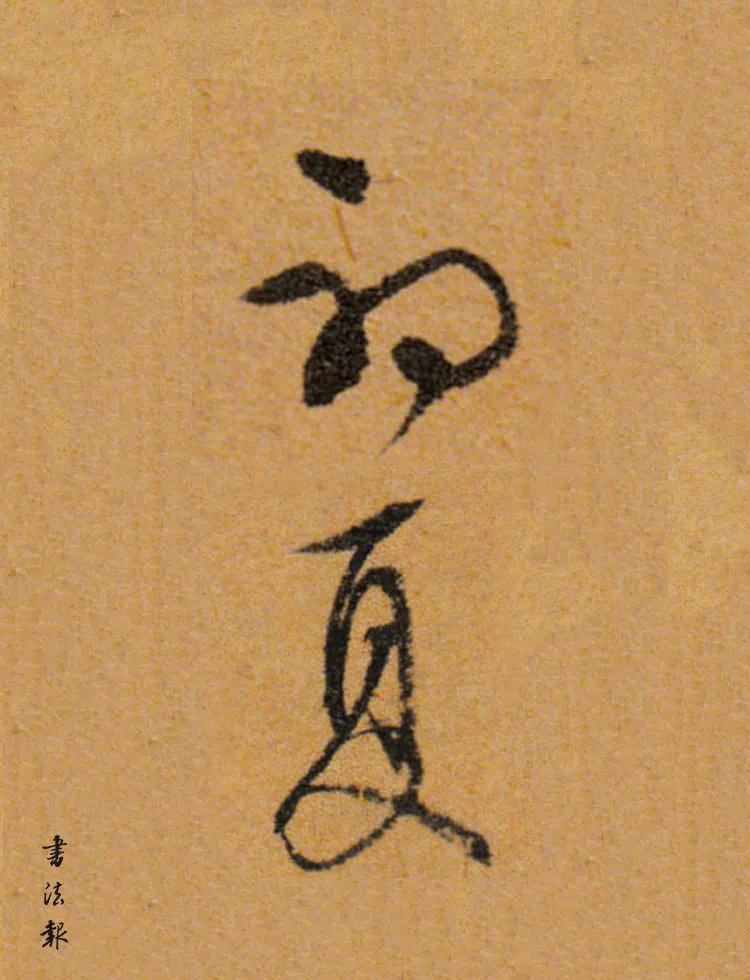 初夏
書法報